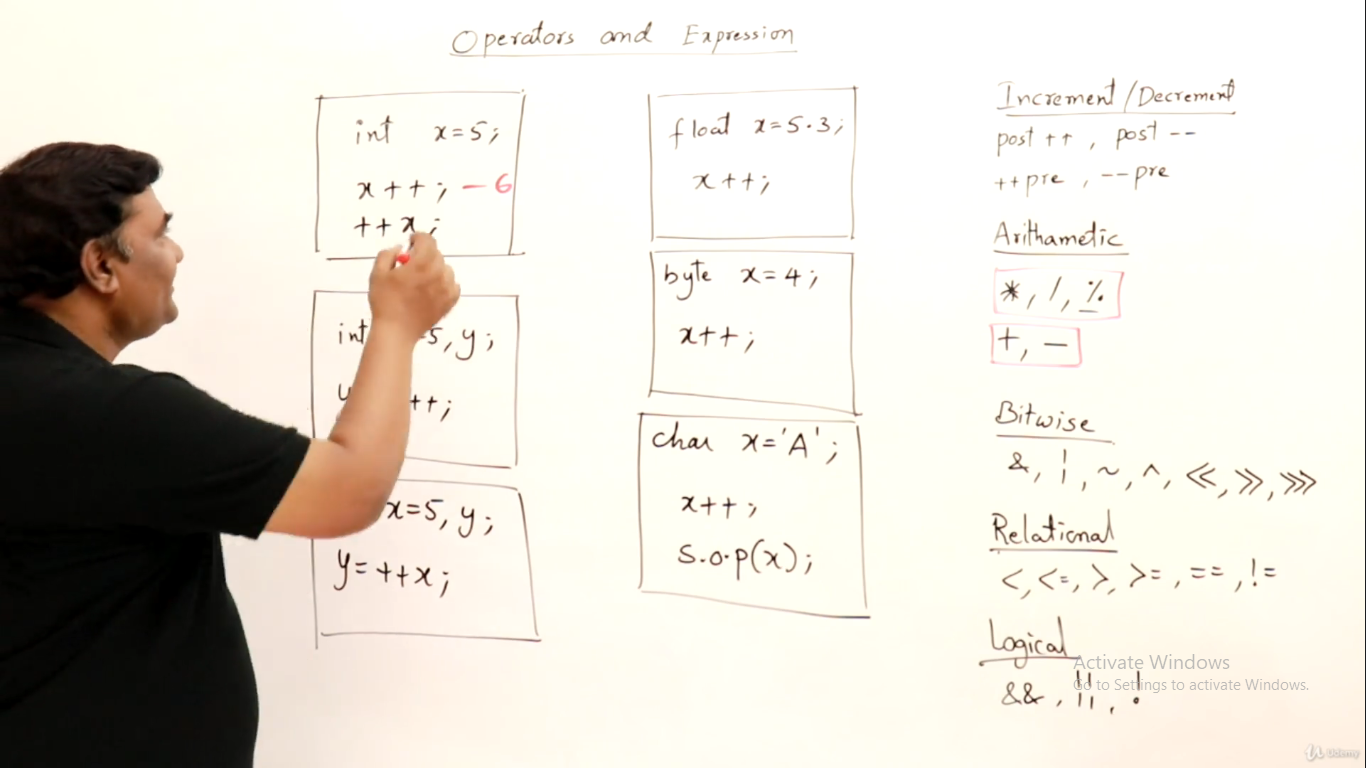 Operators and Expression
int x=5;
x++; — 6
++x;
int =5, y;
++;
x=5, y;
y=++x;
float x=5.3;
x++;
byte x=4;
x++;
char x='A';
x++;
S.o.p(x);
Increment/Decrement
post ++ , post --
++pre , --pre
Arithametic
*, /, %
+, —
Bitwise
&, ¦, ~, ^, <<, >>, >>>
Relational
<, <=, >, >=, ==, !=
Logical
&&, ¦¦, !
Activate Windows
Go to Settings to activate Windows.
Udemy